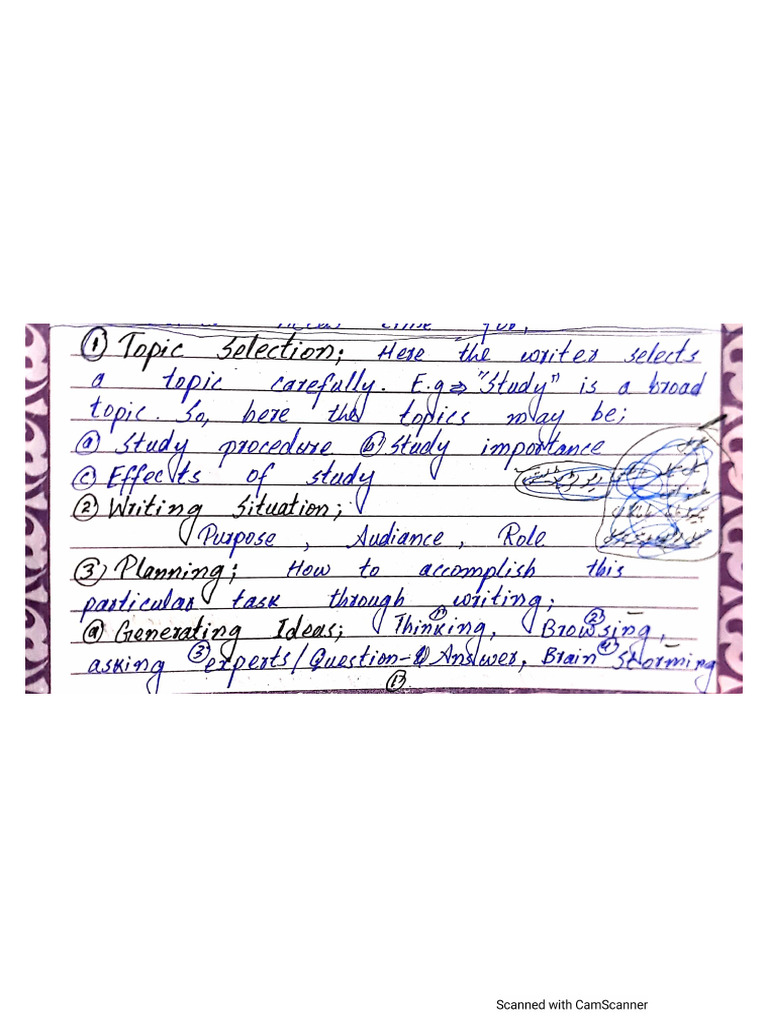 ① Topic Selection; Here the writer selects
a topic carefully. E.g ⇒ "Study" is a broad
topic. So, here the topics may be;
ⓐ Study procedure ⓑ Study importance
ⓒ Effects of study
② Writing Situation;
Purpose, Audiance, Role
③ Planning; How to accomplish this
particular task through writing;
ⓐ Generating Ideas; Thinking①, Browsing②,
asking ③ experts/Question-Answer, Brain④ storming
①
Scanned with CamScanner